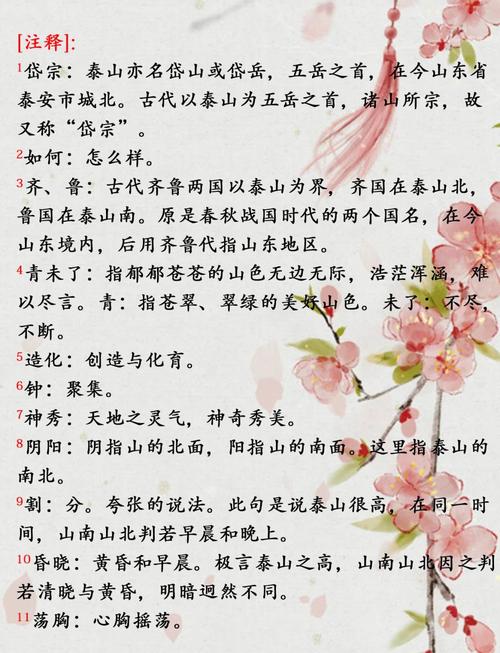 [注释]:
1岱宗：泰山亦名岱山或岱岳，五岳之首，在今山东省
泰安市城北。古代以泰山为五岳之首，诸山所宗，故
又称“岱宗”。
2如何：怎么样。
3齐、鲁：古代齐鲁两国以泰山为界，齐国在泰山北，
鲁国在泰山南。原是春秋战国时代的两个国名，在今
山东境内，后用齐鲁代指山东地区。
4青未了：指郁郁苍苍的山色无边无际，浩茫浑涵，难
以尽言。青：指苍翠、翠绿的美好山色。未了：不尽，
不断。
5造化：创造与化育。
6钟：聚集。
7神秀：天地之灵气，神奇秀美。
8阴阳：阴指山的北面，阳指山的南面。这里指泰山的
南北。
9割：分。夸张的说法。此句是说泰山很高，在同一时
间，山南山北判若早晨和晚上。
10昏晓：黄昏和早晨。极言泰山之高，山南山北因之判
若清晓与黄昏，明暗迥然不同。
11荡胸：心胸摇荡。